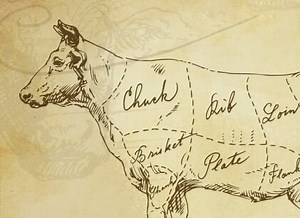 Chuck
Rib
Loin
Brisket
Plate
Flank
Shank